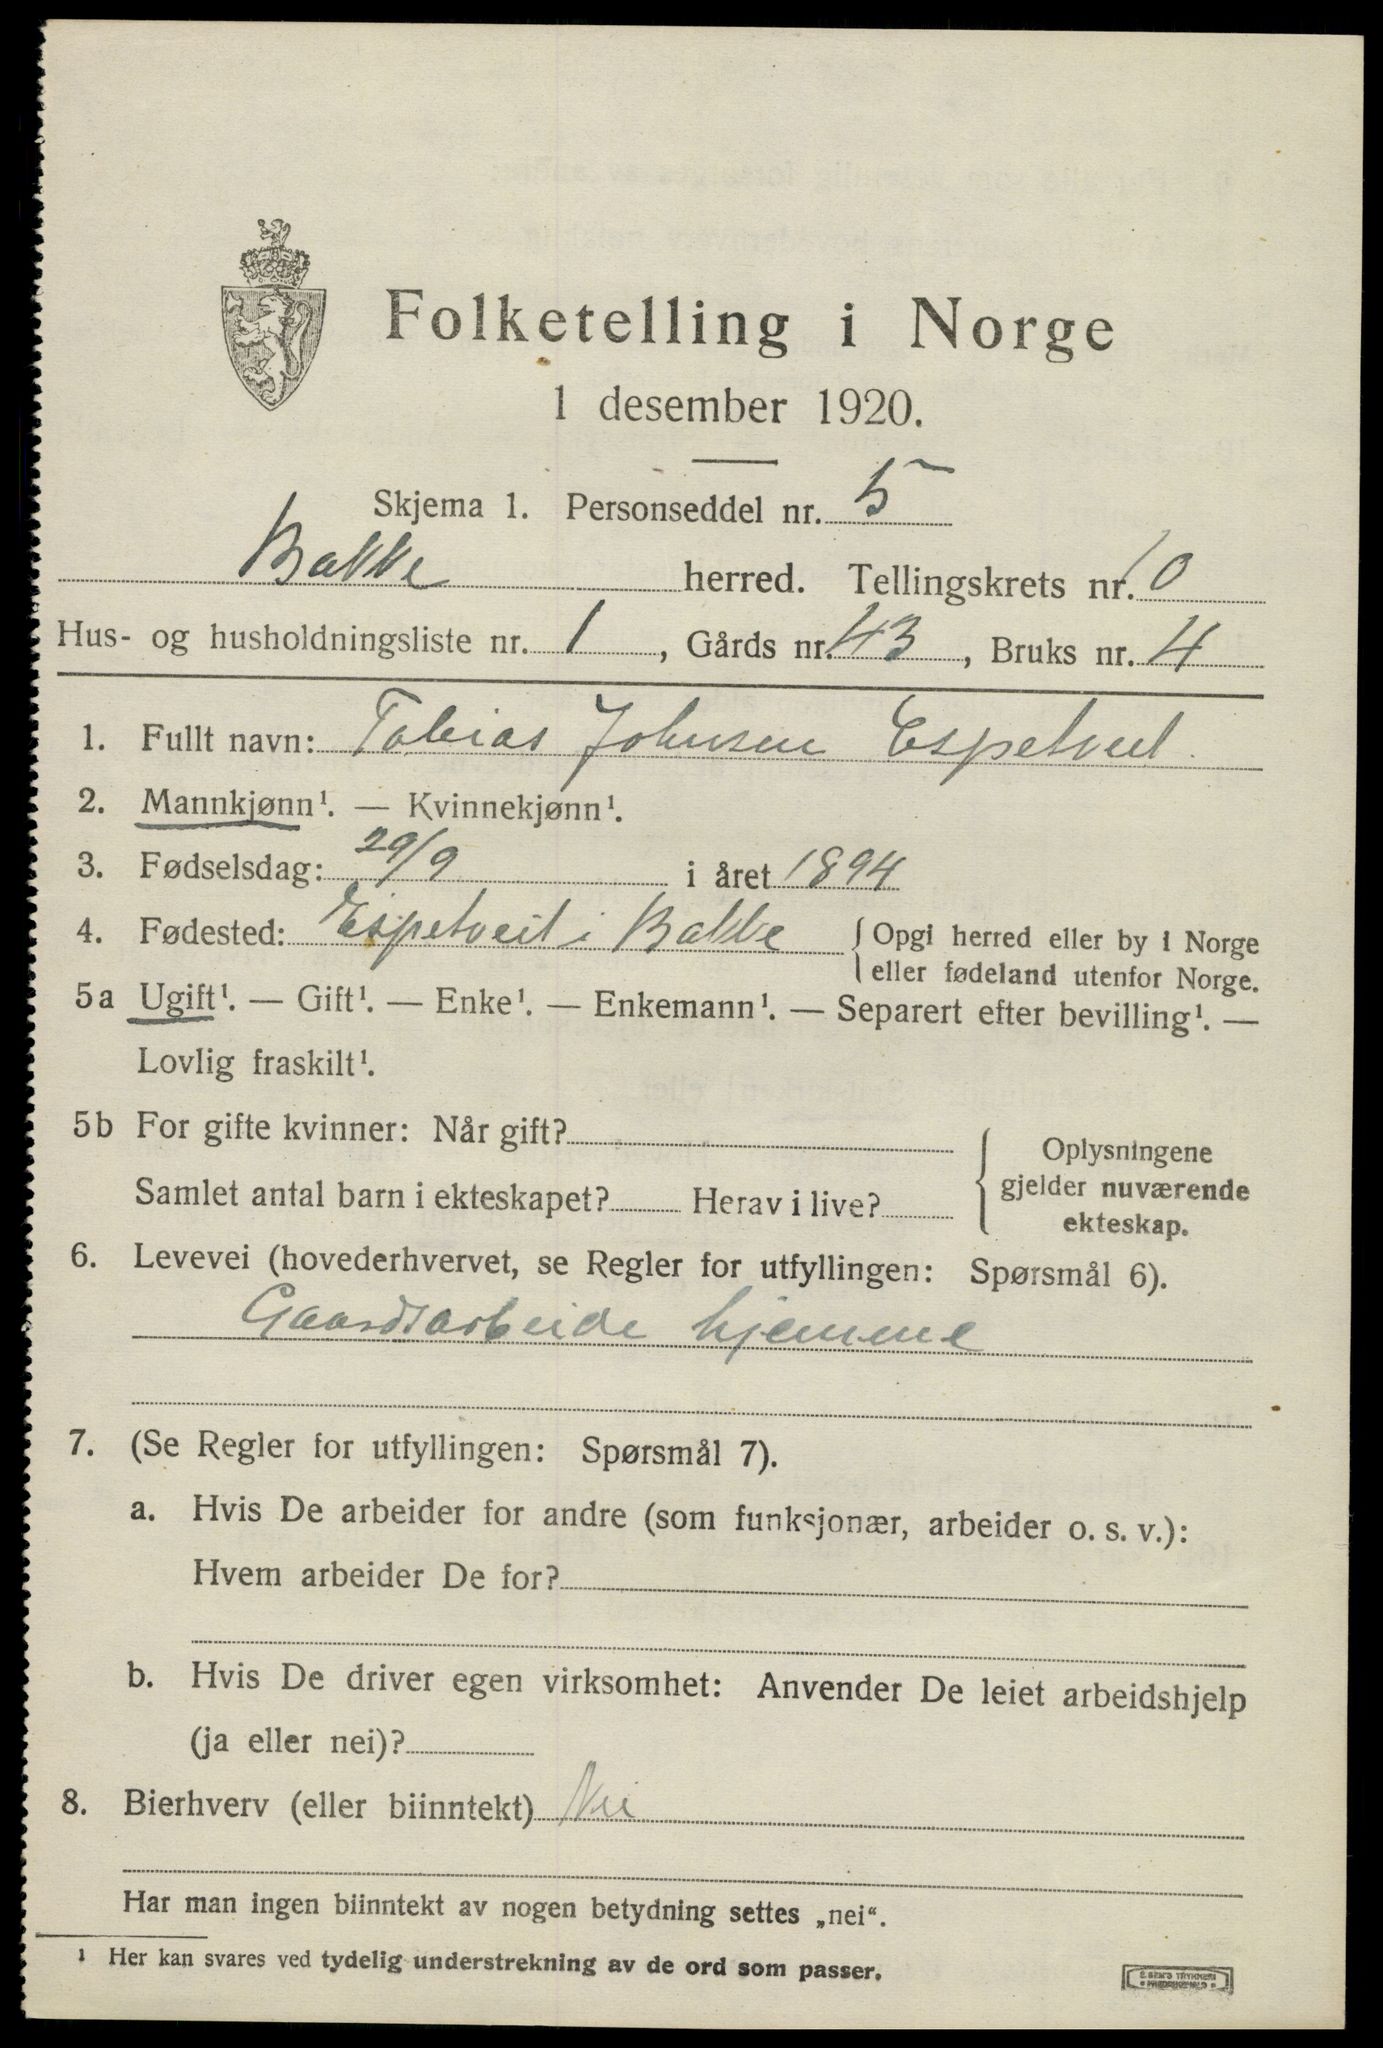 Folketelling i Norge
1 desember 1920.
Skjema 1. Personseddel nr. 5
Bakke herred. Tellingskrets nr. 10
Hus- og husholdningsliste nr. 1, Gårds nr. 43, Bruks nr. 4
1. Fullt navn: Tobias Johnsen Espetveit.
2. Mannkjønn¹. — Kvinnekjønn¹.
3. Fødselsdag: 29/9 i året 1894
4. Fødested: Espetveit i Bakke { Opgi herred eller by i Norge
eller fødeland utenfor Norge.
5a Ugift¹. — Gift¹. — Enke¹. — Enkemann¹. — Separert efter bevilling¹. —
Lovlig fraskilt¹.
5b For gifte kvinner: Når gift?
Samlet antal barn i ekteskapet? Herav i live?
{ Oplysningene
gjelder nuværende
ekteskap.
6. Levevei (hovederhvervet, se Regler for utfyllingen: Spørsmål 6).
Gaardsarbeide hjemme
7. (Se Regler for utfyllingen: Spørsmål 7).
a. Hvis De arbeider for andre (som funksjonær, arbeider o. s. v.):
Hvem arbeider De for?
b. Hvis De driver egen virksomhet: Anvender De leiet arbeidshjelp
(ja eller nei)?
8. Bierhverv (eller biinntekt) Nei
Har man ingen biinntekt av nogen betydning settes „nei“.
¹ Her kan svares ved tydelig understrekning av de ord som passer.